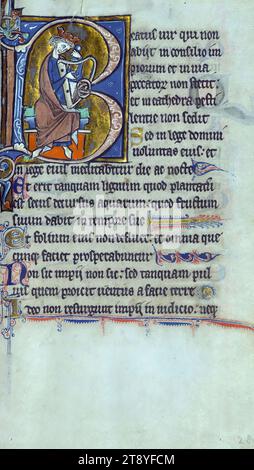 Beatus vir qui non
abijt in consilio im
piorum et in via
peccatorum non stetit :
et in cathedra pesti
lentie non sedit
Sed in lege domini
voluntas eius : et
in lege eius meditabitur die ac nocte
Et erit tanquam lignum quod plantatum
est secus decursus aquarum : quod fructum
suum dabit in tempore suo
Et folium eius non defluet : et omnia que
cunque faciet prosperabuntur
Non sic impii non sic : sed tanquam pul
vis quem proicit ventus a facie terre
Ideo non resurgunt impij in iudicio : neq
alamy
Image ID: 2T8YFCM
www.alamy.com